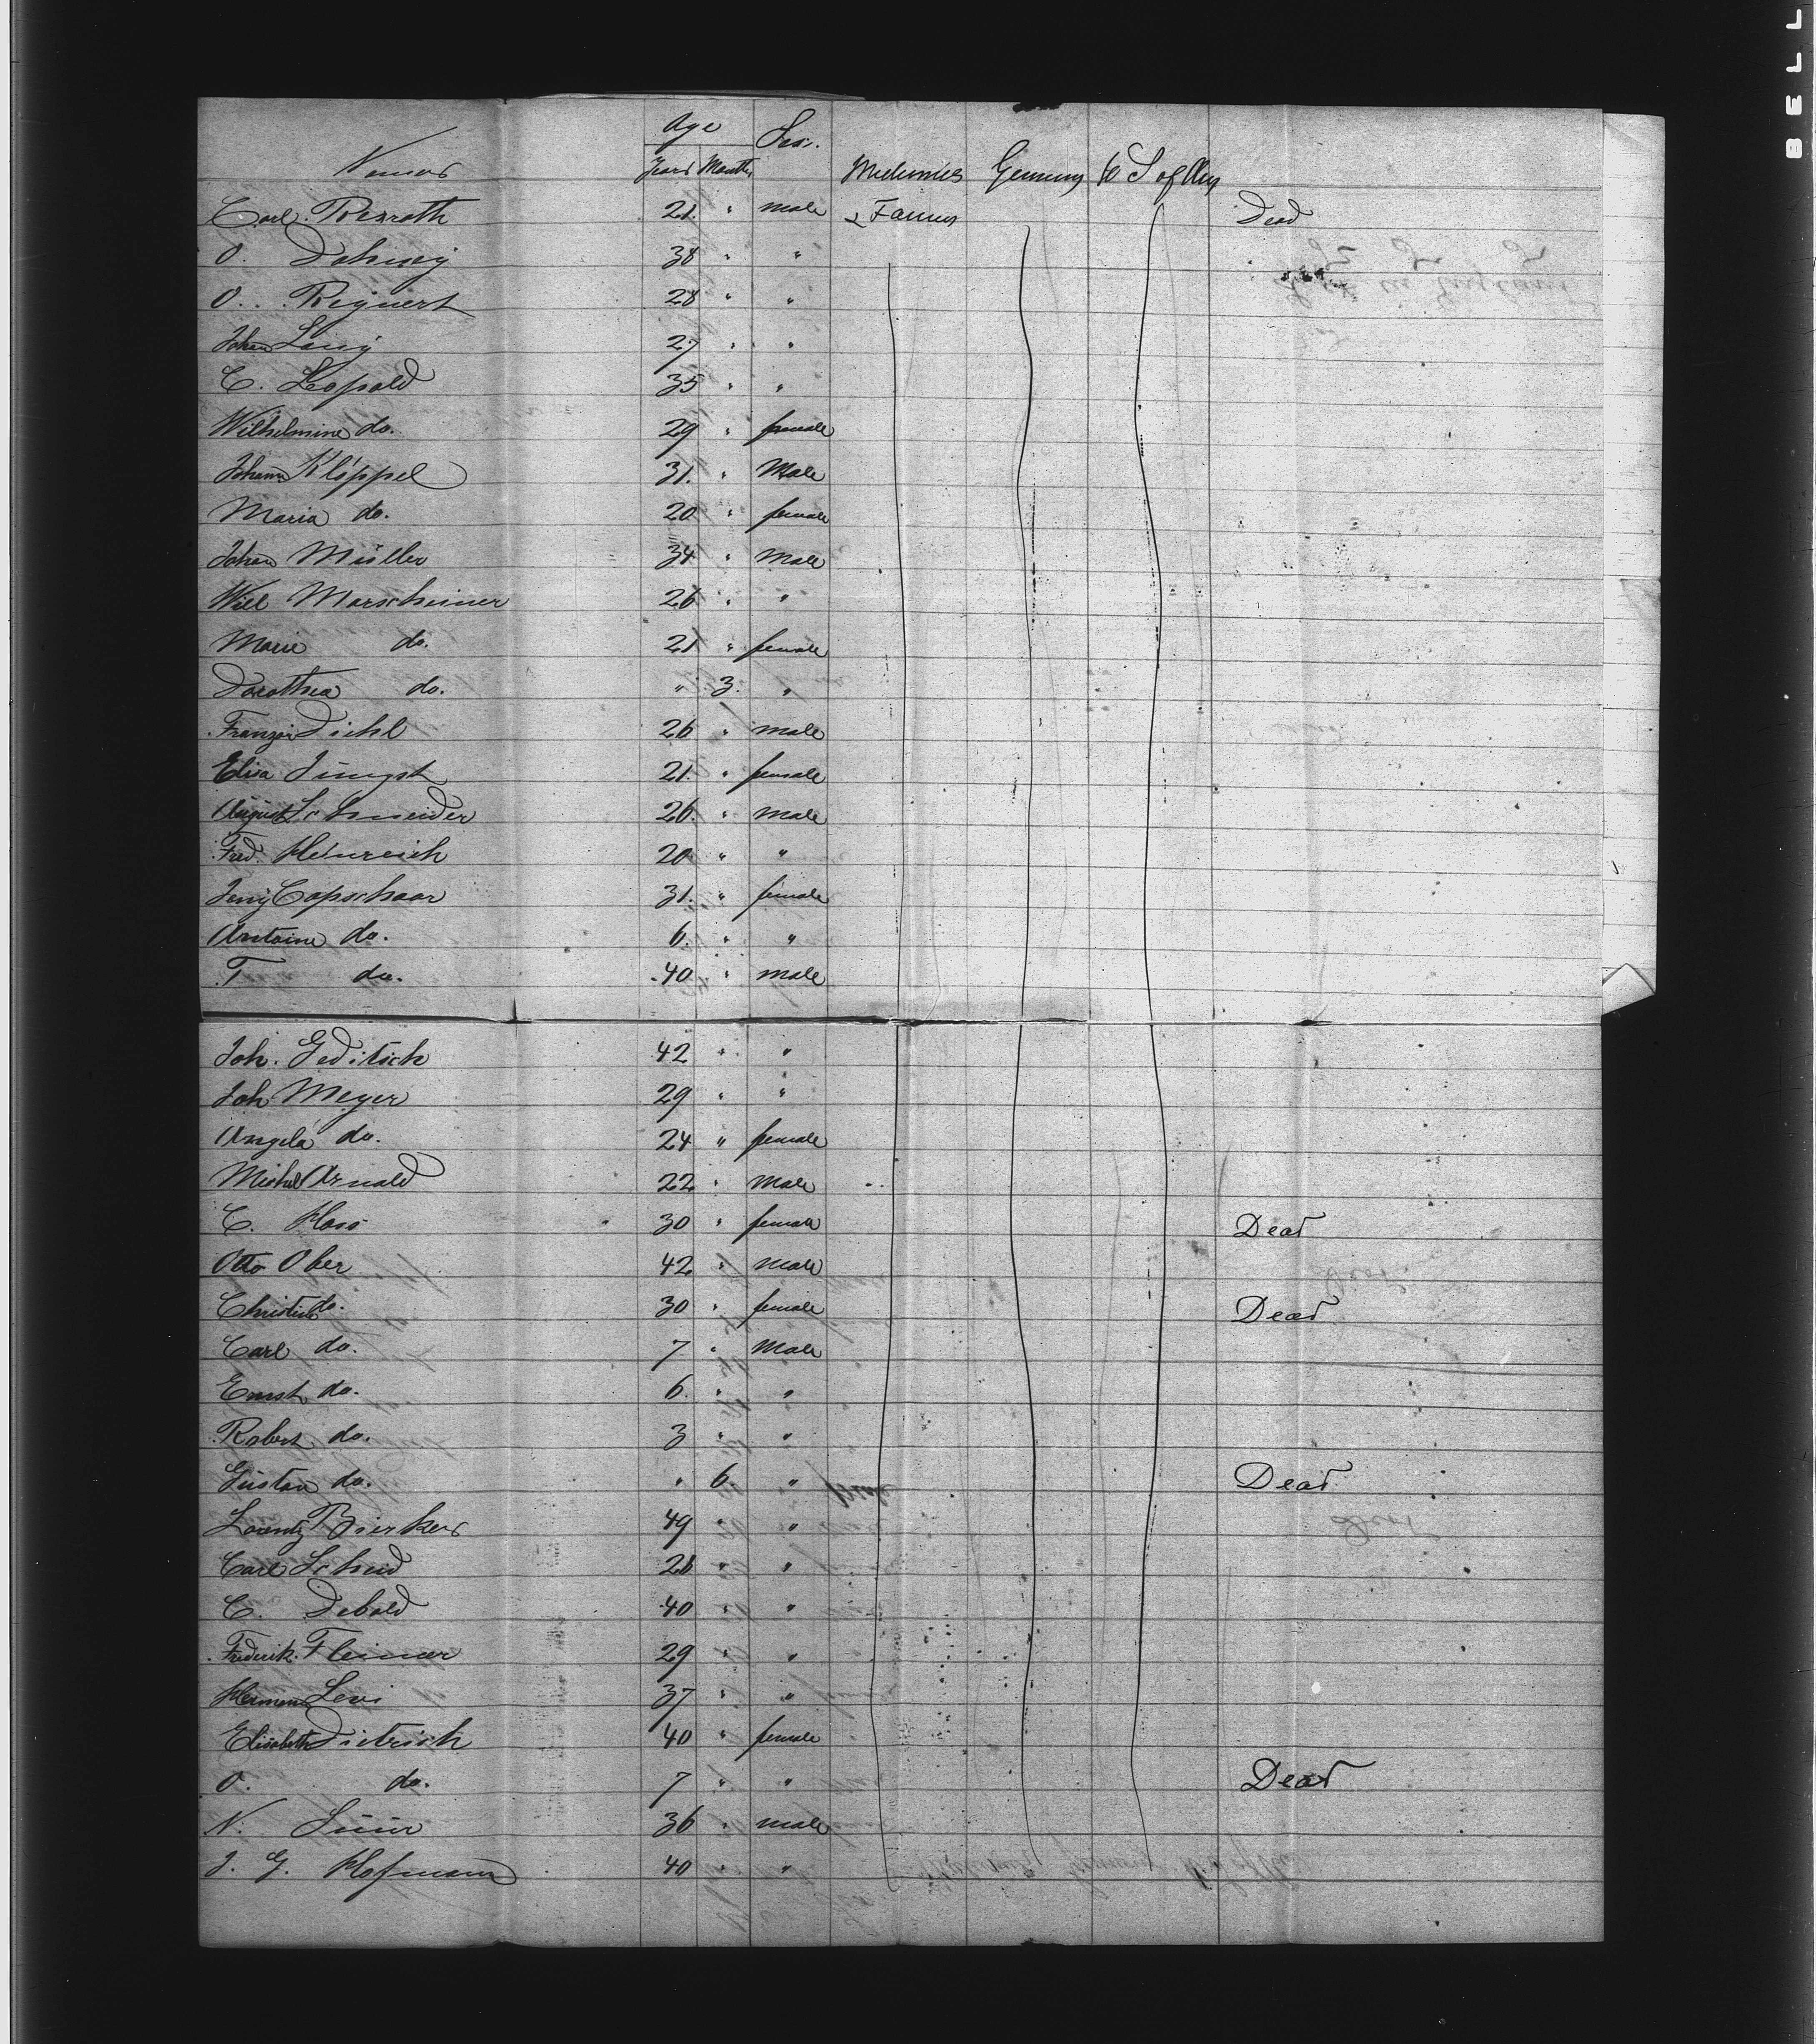 Age Sex.
Names Years Months Mechanics Germany to
Carl Rexroth 21 " male & Farmers Dead
O. 38 " "
O. Reynert 28 " "
Johan Lang 27 " "
C. Leopold 35 " "
Wilhelmine do. 29 " female
Johann Klöppel 31. " Male
Maria do. 20 " female
Johan Müller 34 " Male
Will Marscheiner 26 " "
Marie do. 21 " female
Dorothea do. " 3. "
Diehl 26 " male
Elisa Jüngst 21. " female
August Schneider 26. " male
Fred. Heinreich 20 " "
Jeny Capschaar 31. " female
Antoine do. 6. " "
T do. 40 " male
Joh. Geditsch 42 " "
Joh Meyer 29 " "
Angela do. 24 " female
Michel Arnold 22 " Male
C. Hass 30 " female Dead
Otto Ober 42 " Male
do. 30 " female Dead
Carl do. 7 " Male
Ernst do. 6. " "
Robert do. 3 " "
Gustav do. " 6 " Dead
Lorentz 49 " "
Carl Scheid 28 " "
C. Debold 40 " "
Frederik. Fleimer 29 " "
Herman Levi 37 " "
Elisabeth Dietrich 40 " female
O. do. 7 " " Dead
N. 36 " male
J. G. Hofmann 40 " "
BELL